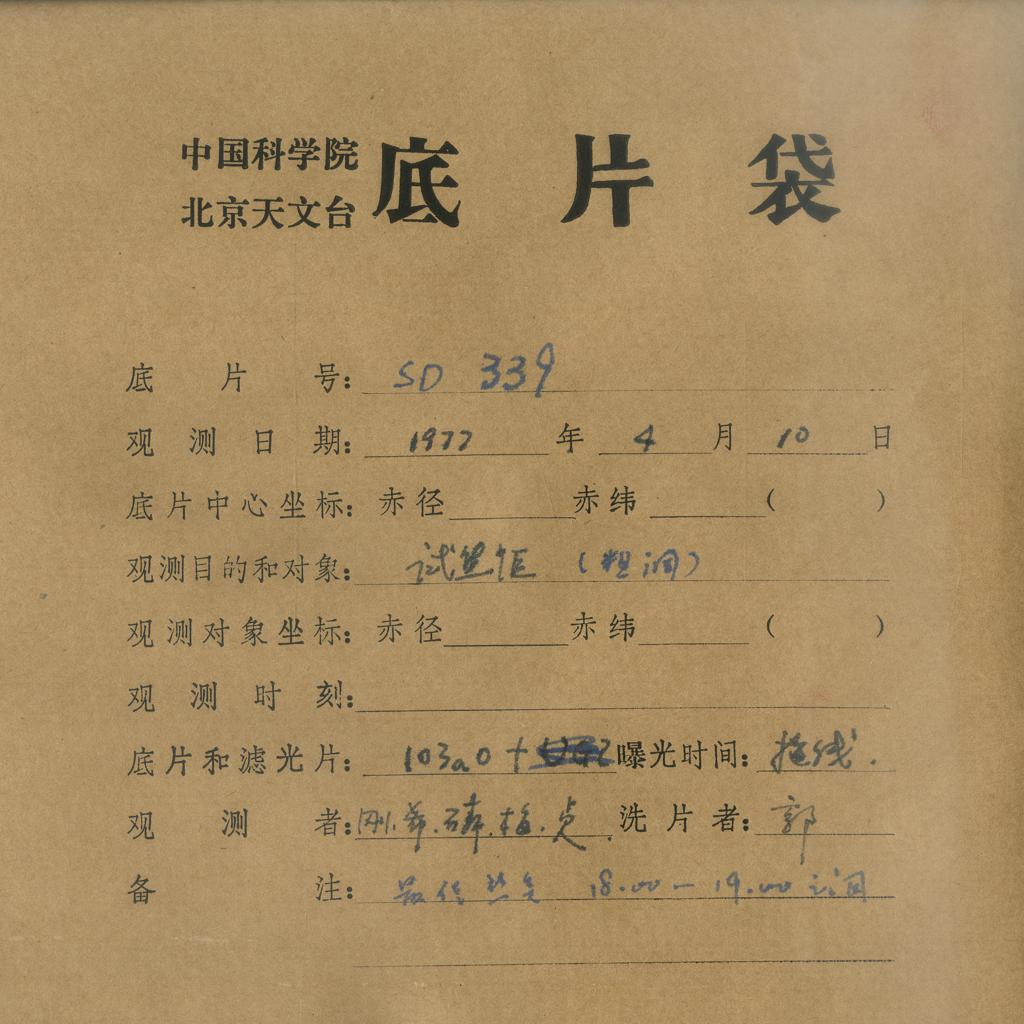 中国科学院
北京天文台
底片袋
底片号: SD 339
观测日期: 1977年4月10日
底片中心坐标: 赤径 赤纬 ( )
观测目的和对象: 试焦距 (粗调)
观测对象坐标: 赤径 赤纬 ( )
观测时刻:
底片和滤光片: 103aO + 曝光时间: 拖线.
观测者: 刚. 磷. 梅. 贞 洗片者: 郭
备注: 最佳焦点 18.00-19.00 之间